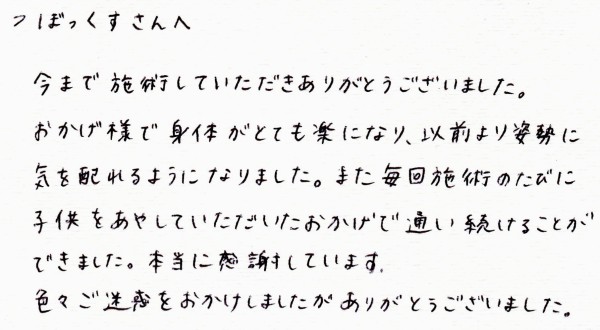 つぼっくすさんへ
今まで施術していただきありがとうございました。
おかげ様で身体がとても楽になり、以前より姿勢に
気を配れるようになりました。また毎回施術のたびに
子供をあやしていただいたおかげで通い続けることが
できました。本当に感謝しています。
色々ご迷惑をおかけしましたがありがとうございました。